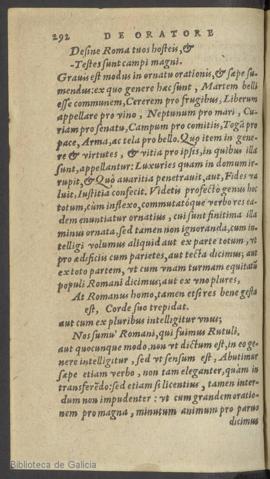 292 DE ORATORE
Desine Roma tuos hosteis, &
-Testes sunt campi magni.
Grauis est modus in ornatu orationis, & sæpe su-
mendus: ex quo genere hæc sunt, Martem belli
esse communem, Cererem pro frugibus, Liberum
appellare pro vino, Neptunum pro mari, Cu-
riam pro senatu, Campum pro comitiis, Togã pro
pace, Arma, ac tela pro bello. Quo item in gene-
re & virtutes, & vitia pro ipsis, in quibus illa
sunt, appellantur: Luxuries quam in domum ir-
rupit, & Quò auaritia penetrauit, aut, Fides va
luit, Iustitia confecit. Videtis profectò genus hoc
totum, cùm inflexo, commutatóque verbo res ea-
dem enuntiatur ornatius, cui sunt finitima illa
minus ornata, sed tamen non ignoranda, cum in-
telligi volumus aliquid aut ex parte totum, vt
pro ædificiis cum parietes, aut tecta dicimus; aut
ex toto partem, vt cum vnam turmam equitatũ
populi Romani dicimus; aut ex vno plures,
At Romanus homo, tamen etsi res bene gesta
est, Corde suo trepidat.
aut cum ex pluribus intelligitur vnus;
Nos sumu' Romani, qui fuimus Rutuli,
aut quocunque modo, non vt dictum est, in eo ge-
nere intelligitur, sed vt sensum est, Abutimur
sæpe etiam verbo, non tam eleganter, quàm in
transferẽdo: sed etiam si licentius, tamen inter-
dum non impudenter: vt cum grandem oratio-
nem pro magna, minutum animum pro paruo
dicimus
Biblioteca de Galicia